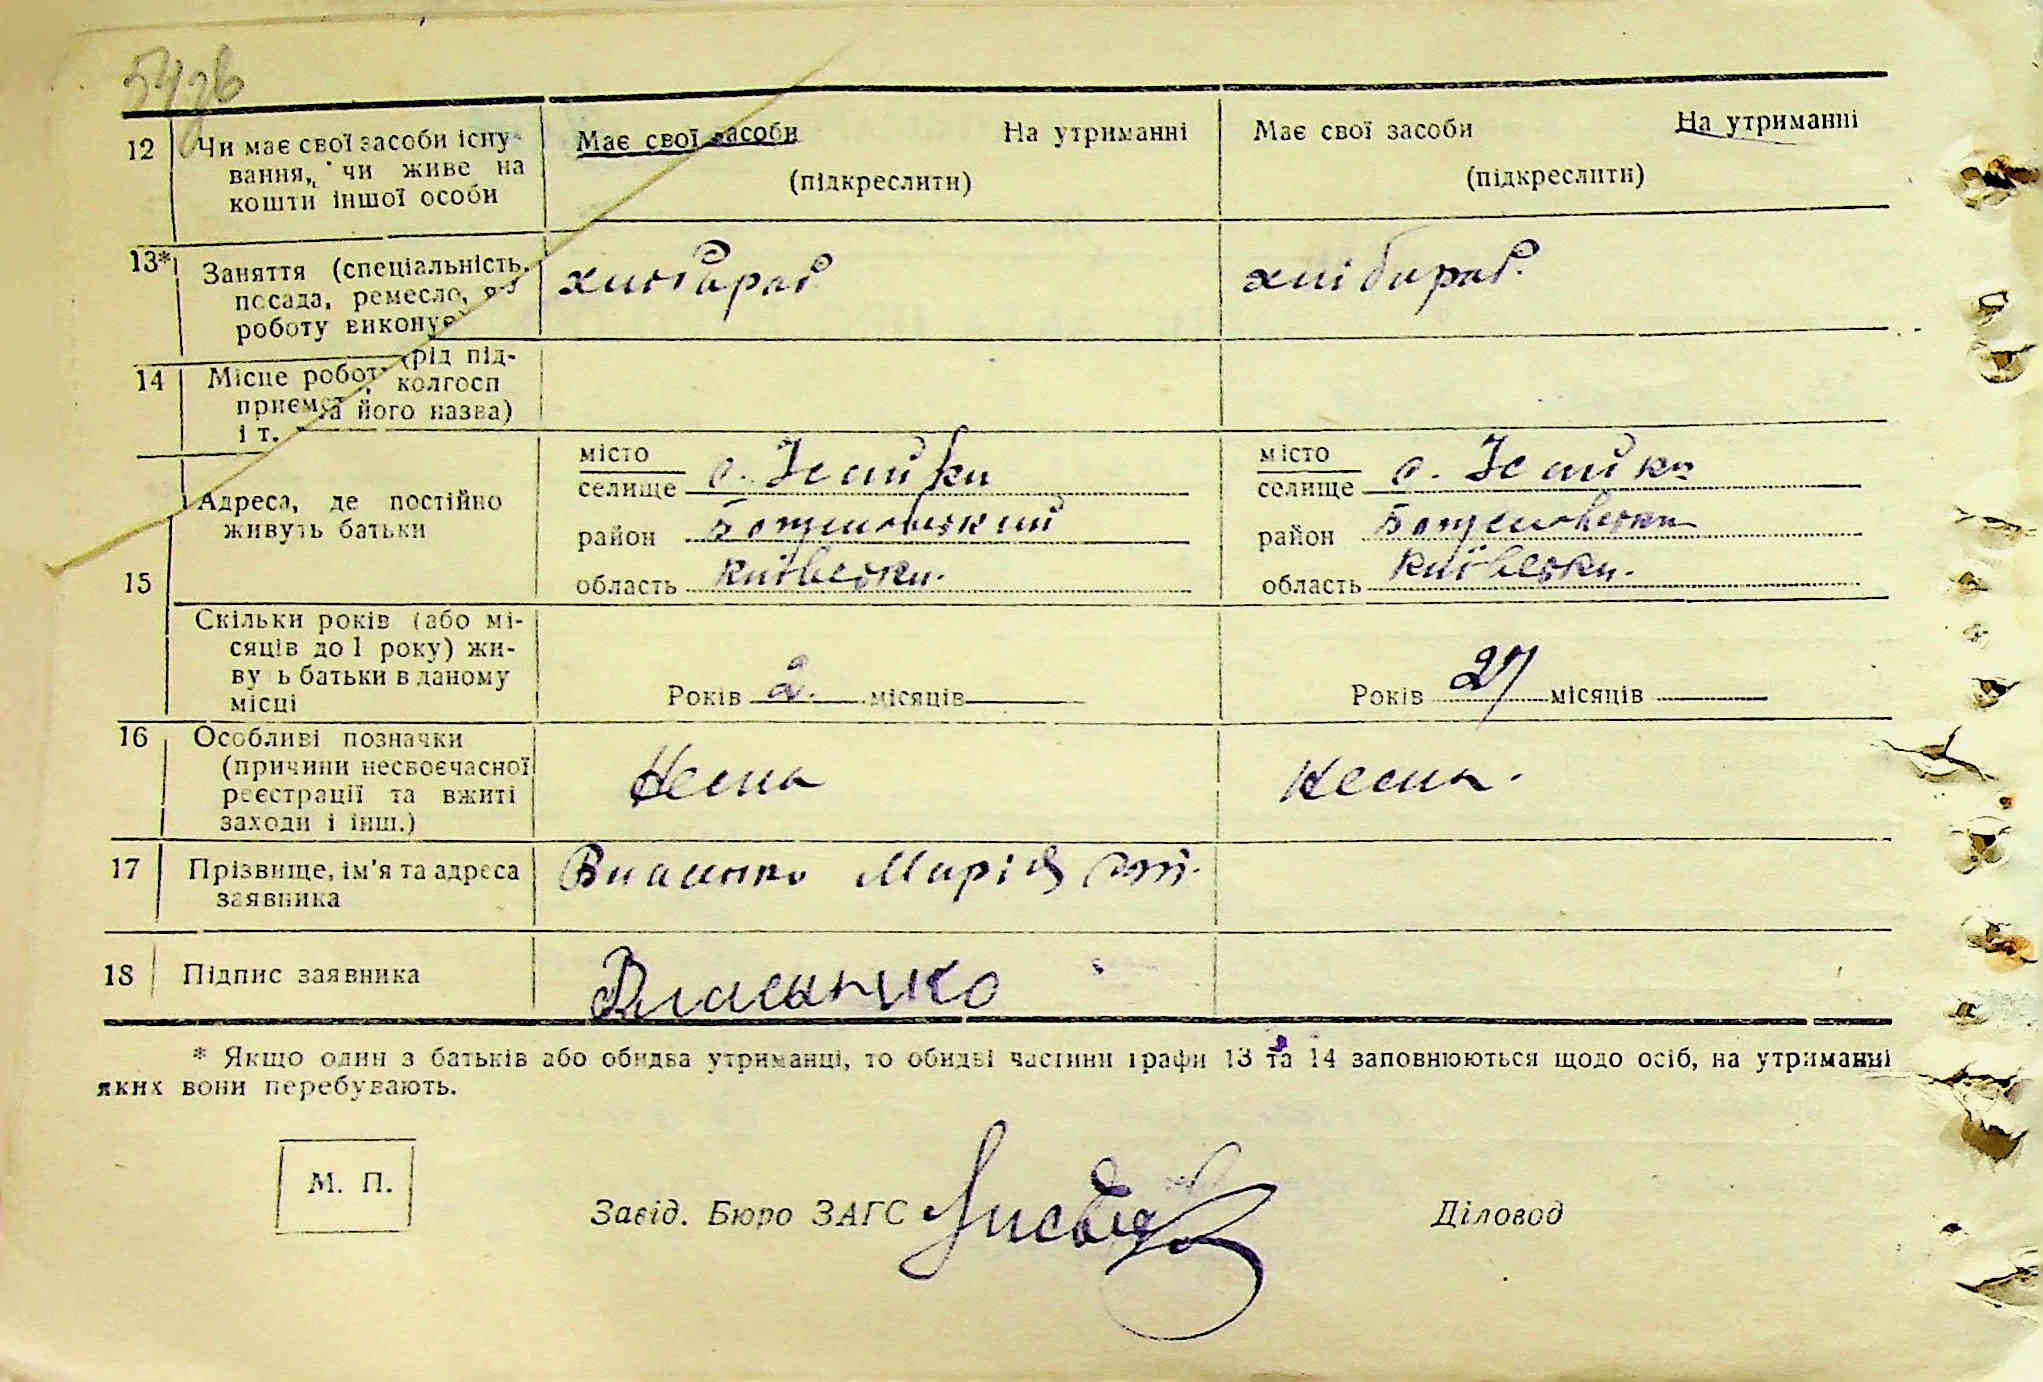 12 Чи має свої засоби існу-
вання, чи живе на
кошти іншої особи
Має свої засоби На утриманні
(підкреслити)
Має свої засоби На утриманні
(підкреслити)
13* Заняття (спеціальність,
посада, ремесло, яку
роботу виконує)
хлібороб
хлібороб.
14 Місце роботи (рід під-
приємства, колгосп
і т. та його назва)
15 Адреса, де постійно
живуть батьки
місто
селище с. Ісайки
район Богуславський
область Київськ.
місто
селище с. Ісайки
район Богуславськи
область Київськи.
Скільки років (або мі-
сяців до 1 року) жи-
вуть батьки в даному
місці
Років 2. місяців
Років 27 місяців
16 Особливі позначки
(причини несвоєчасної
реєстрації та вжиті
заходи і інш.)
Немає
Немає.
17 Прізвище, ім'я та адреса
заявника
Власенко Марія
18 Підпис заявника
Власенко
* Якщо один з батьків або обидва утриманці, то обидві частини графи 13 та 14 заповнюються щодо осіб, на утриманні
яких вони перебувають.
М. П.
Завід. Бюро ЗАГС
Діловод